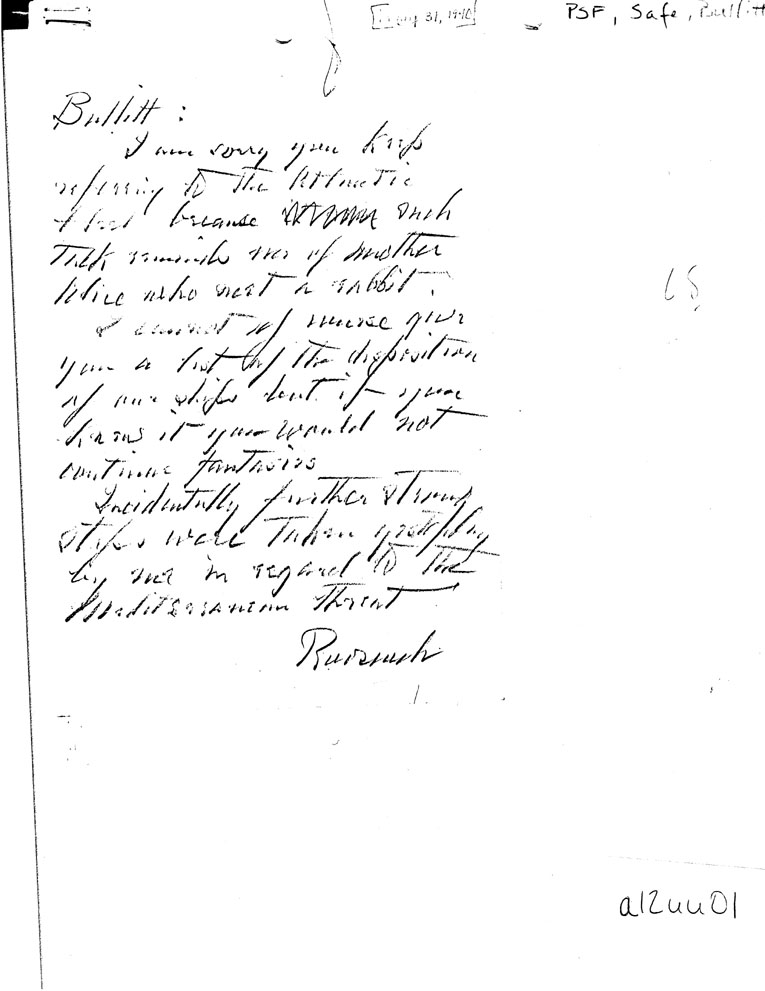 [May 31, 1940]
PSF, Safe, Bullitt
Bullitt :
I am sorry you keep
referring to the Atlantic
fleet because such
talk reminds me of mother
Alice who met a rabbit.
I cannot of course give
you a list of the disposition
of our ships but if you
knew it you would not
continue fantasies
Incidentally further strong
steps were taken yesterday
by me in regard to the
Mediterranean threat
Roosevelt
a12uu01